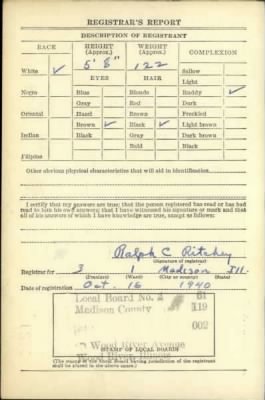 REGISTRAR'S REPORT
DESCRIPTION OF REGISTRANT
RACE HEIGHT (Approx.) WEIGHT (Approx.) COMPLEXION
White ✓ 5' 8" 122 Sallow
Light
EYES HAIR
Negro Blue Blonde Ruddy ✓
Gray Red Dark
Oriental Hazel Brown Freckled
Brown ✓ Black ✓ Light brown
Indian Black Gray Dark brown
Bald Black
Filipino
Other obvious physical characteristics that will aid in identification
I certify that my answers are true; that the person registered has read or has had
read to him his own answers; that I have witnessed his signature or mark and that
all of his answers of which I have knowledge are true, except as follows:
Ralph C. Ritchey
(Signature of registrar)
Registrar for 3 1 Madison Ill.
(Precinct) (Ward) (City or county) (State)
Date of registration Oct. 16 1940
Local Board No. 2 61
Madison County 119
002
Wood River Avenue
Wood River, Illinois
STAMP OF LOCAL BOARD
(The stamp of the Local Board having jurisdiction of the registrant
shall be placed in the above space.)